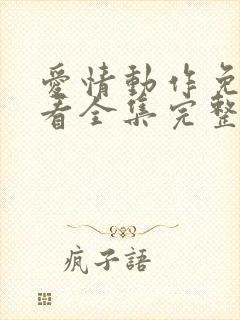 愛情動作免
看全集完整
疯子語